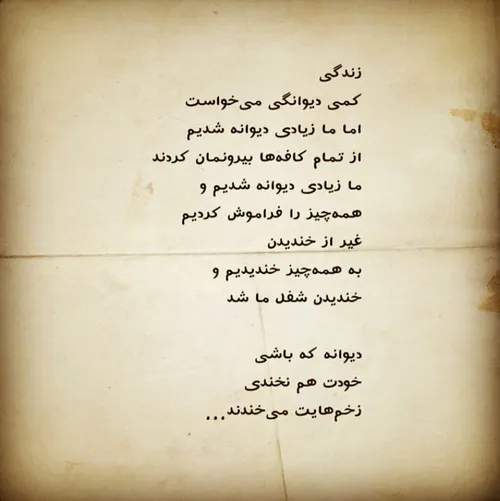 زندگی
کمی دیوانگی می‌خواست
اما ما زیادی دیوانه شدیم
از تمام کافه‌ها بیرونمان کردند
ما زیادی دیوانه شدیم و
همه‌چیز را فراموش کردیم
غیر از خندیدن
به همه‌چیز خندیدیم و
خندیدن شغل ما شد
دیوانه که باشی
خودت هم نخندی
زخم‌هایت می‌خندند...